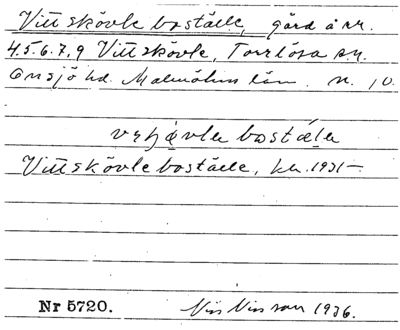 Vittskövle boställe, gård å nr.
4.5.6.7.9 Vittskövle, Torrlösa sn.
Onsjö hd. Malmöhus län. n. 10.
boställe
Vittskövle boställe, kr. 1931–
Nr 5720. Nils Nilsson 1936.